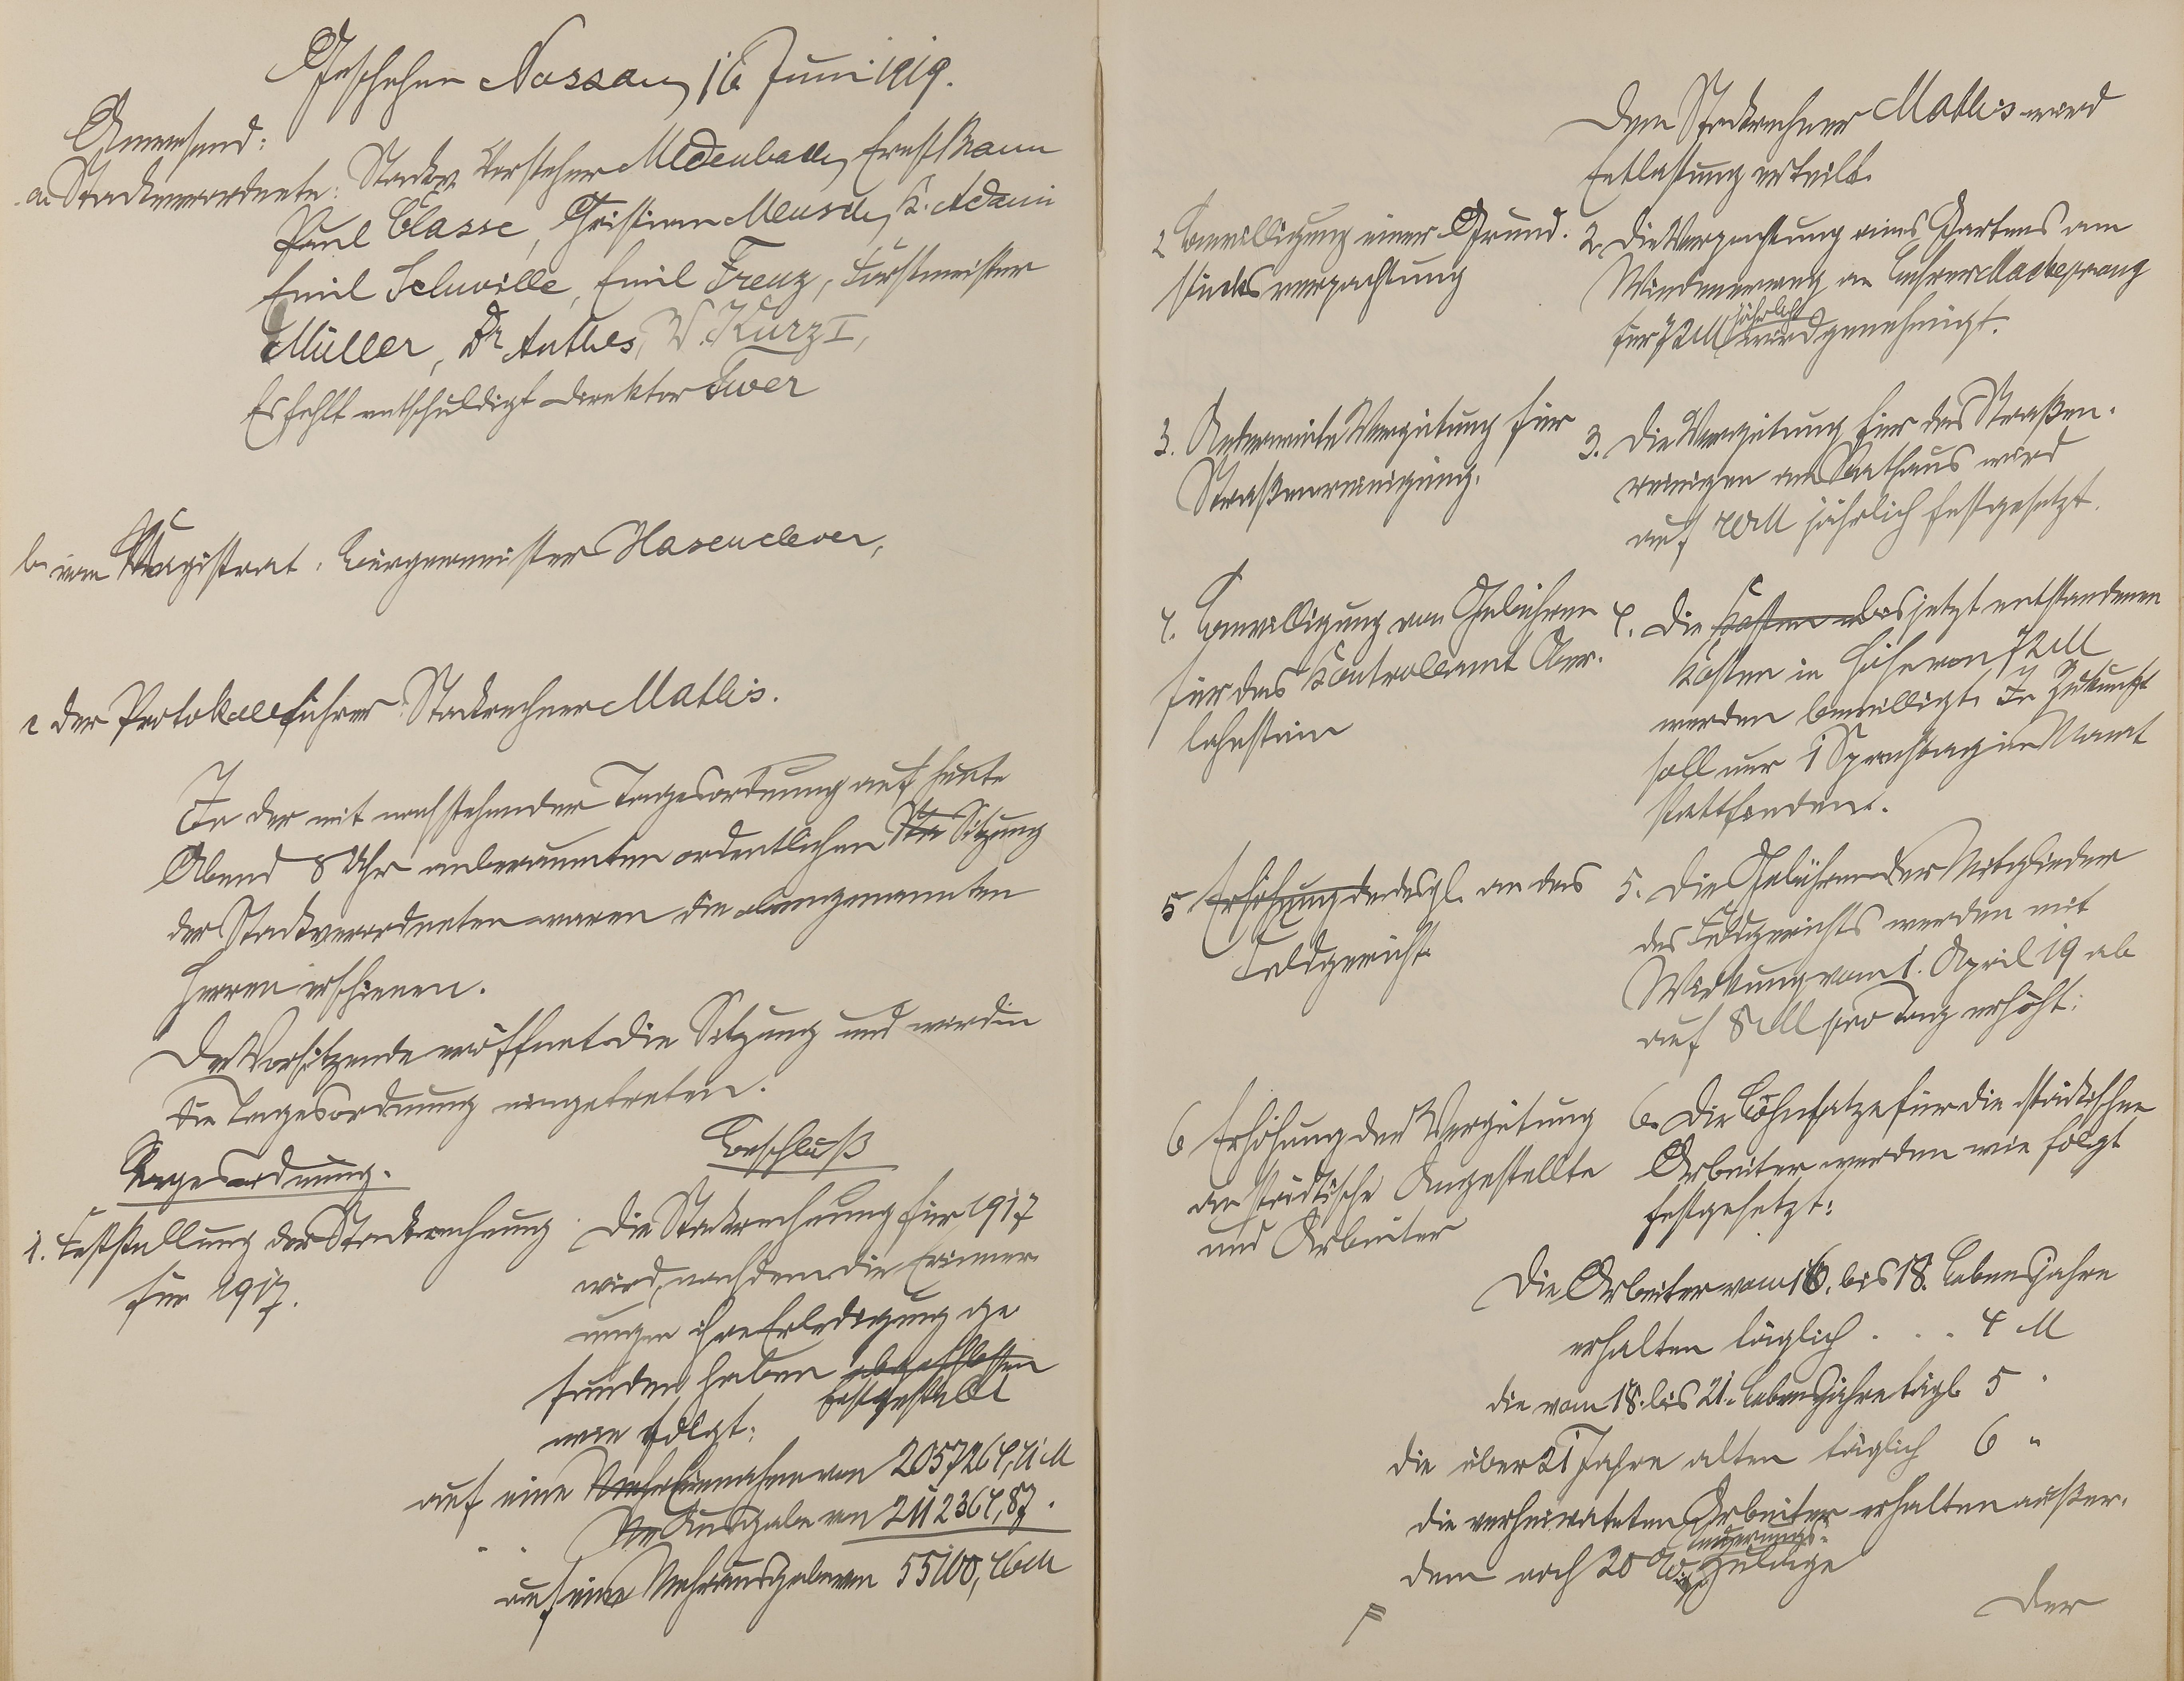 Geschehen Nassau, 16 Juni 1919.
Anwesend:
a. Stadtverordnete: Stadtv. Vorsteher Medenbach, Ernst Mann
Paul Classe, Christian Meusch, K. Adami
Emil Schuville, Emil Freuz, Forstmeister
Müller, Dr Anthes, W. Kurz I,
Es fehlt entschuldigt Direktor
b. vom Magistrat: Bürgermeister Hasenclever,
c der Protokollführer: Stadtrechner Mathis.
In der mit nachstehender Tagesordnung auf heute
Abend 8 Uhr anberaumten ordentlichen Sitzung
der Stadtverordneten waren die obengenannten
Herren erschienen.
Der Vorsitzende eröffnet die Sitzung und wird in
die Tagesordnung eingetreten.
Tagesordnung.
Beschluß
1. Feststellung der Stadtrechnung
für 1917.
Die Stadtrechnung für 1917
wird, nachdem die Erinner
ungen ihre Erledigung ge
funden haben abgeschlossen
festgestellt
wie folgt:
auf eine Mehr Einnahme von 2057264,41 M
" " Ausgabe von 2112364,87 "
auf eine Mehrausgabe von 55100,46 M
Dem Stadtrechner Mathis wird
Entlastung erteilt.
2 Bewilligung einer Grund-
stücksverpachtung
2. Die Verpachtung eines Gartens am
Windenerweg an Lehrer
für 72 M jährlich wird genehmigt.
3. Anderweite Vergütung für
Straßenreinigung.
3. Die Vergütung für das Straßen-
reinigen am Rathaus wird
auf M jährlich festgesetzt.
4. Bewilligung von Gebühren
für das Kontrollamt Ober-
lahnstein
4. Die Kosten bis jetzt entstandenen
Kosten in Höhe von 72 M
werden bewilligt. In Zukunft
soll nur 1 Sprechtag im Monat
stattfinden.
5 Erhöhung desgl. an das
Feldgericht
5. Die Gebühren der Mitglieder
des Feldgerichts werden mit
Wirkung vom 1. April 19 ab
auf 8 M pro Tag erhöht.
6 Erhöhung der Vergütung
an städtische Angestellte
und Arbeiter
6. Die Lohnsätze für die städtischen
Arbeiter werden wie folgt
festgesetzt:
Die Arbeiter vom 16. bis 18. Lebensjahre
erhalten täglich . . . 4 M
die vom 18. bis 21. Lebensjahre tägl. 5 "
die über 21 Jahre alten täglich 6 "
die verheirateten Arbeiter erhalten außer-
dem noch 20 % Teuerungs-
Zulage
Der